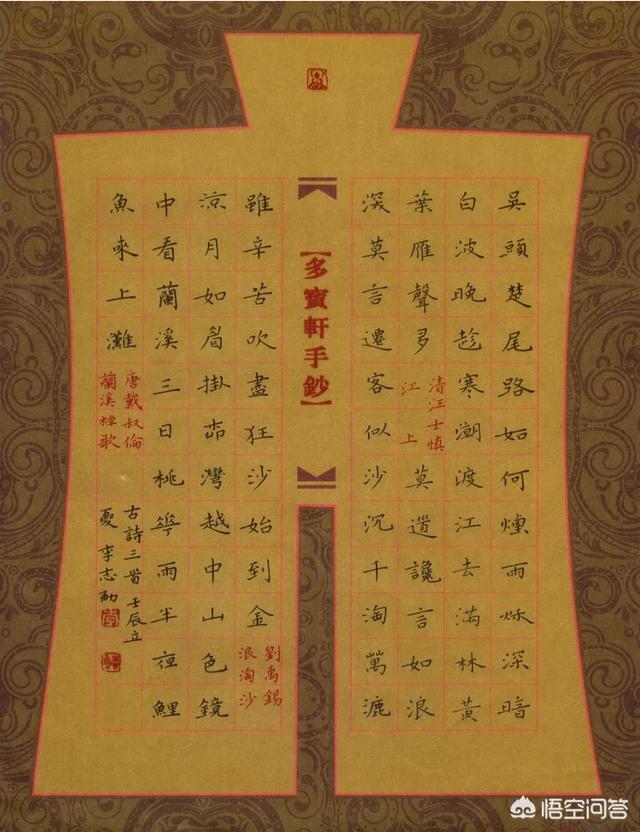 吳頭楚尾路如何煙雨秌深暗
白波晚趁寒潮渡江去滿林黃
葉雁聲多
清汪士慎
江上
莫道讒言如浪
深莫言遷客似沙沉千淘萬漉
【多寶軒手鈔】
雖辛苦吹盡狂沙始到金
劉禹錫
浪淘沙
涼月如眉掛桺灣越中山色鏡
中看蘭溪三日桃花雨半夜鯉
魚來上灘
唐戴叔倫
蘭溪棹歌
古詩三首壬辰立
夏李志
悟空问答